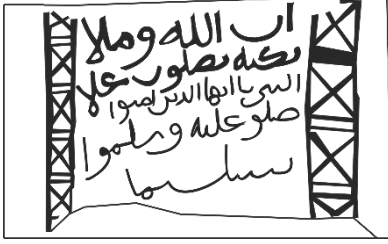 ان الله وملا
ئكته يصلون علا
النبي يا ايها الذين امنوا
صلو عليه وسلموا
تسليما